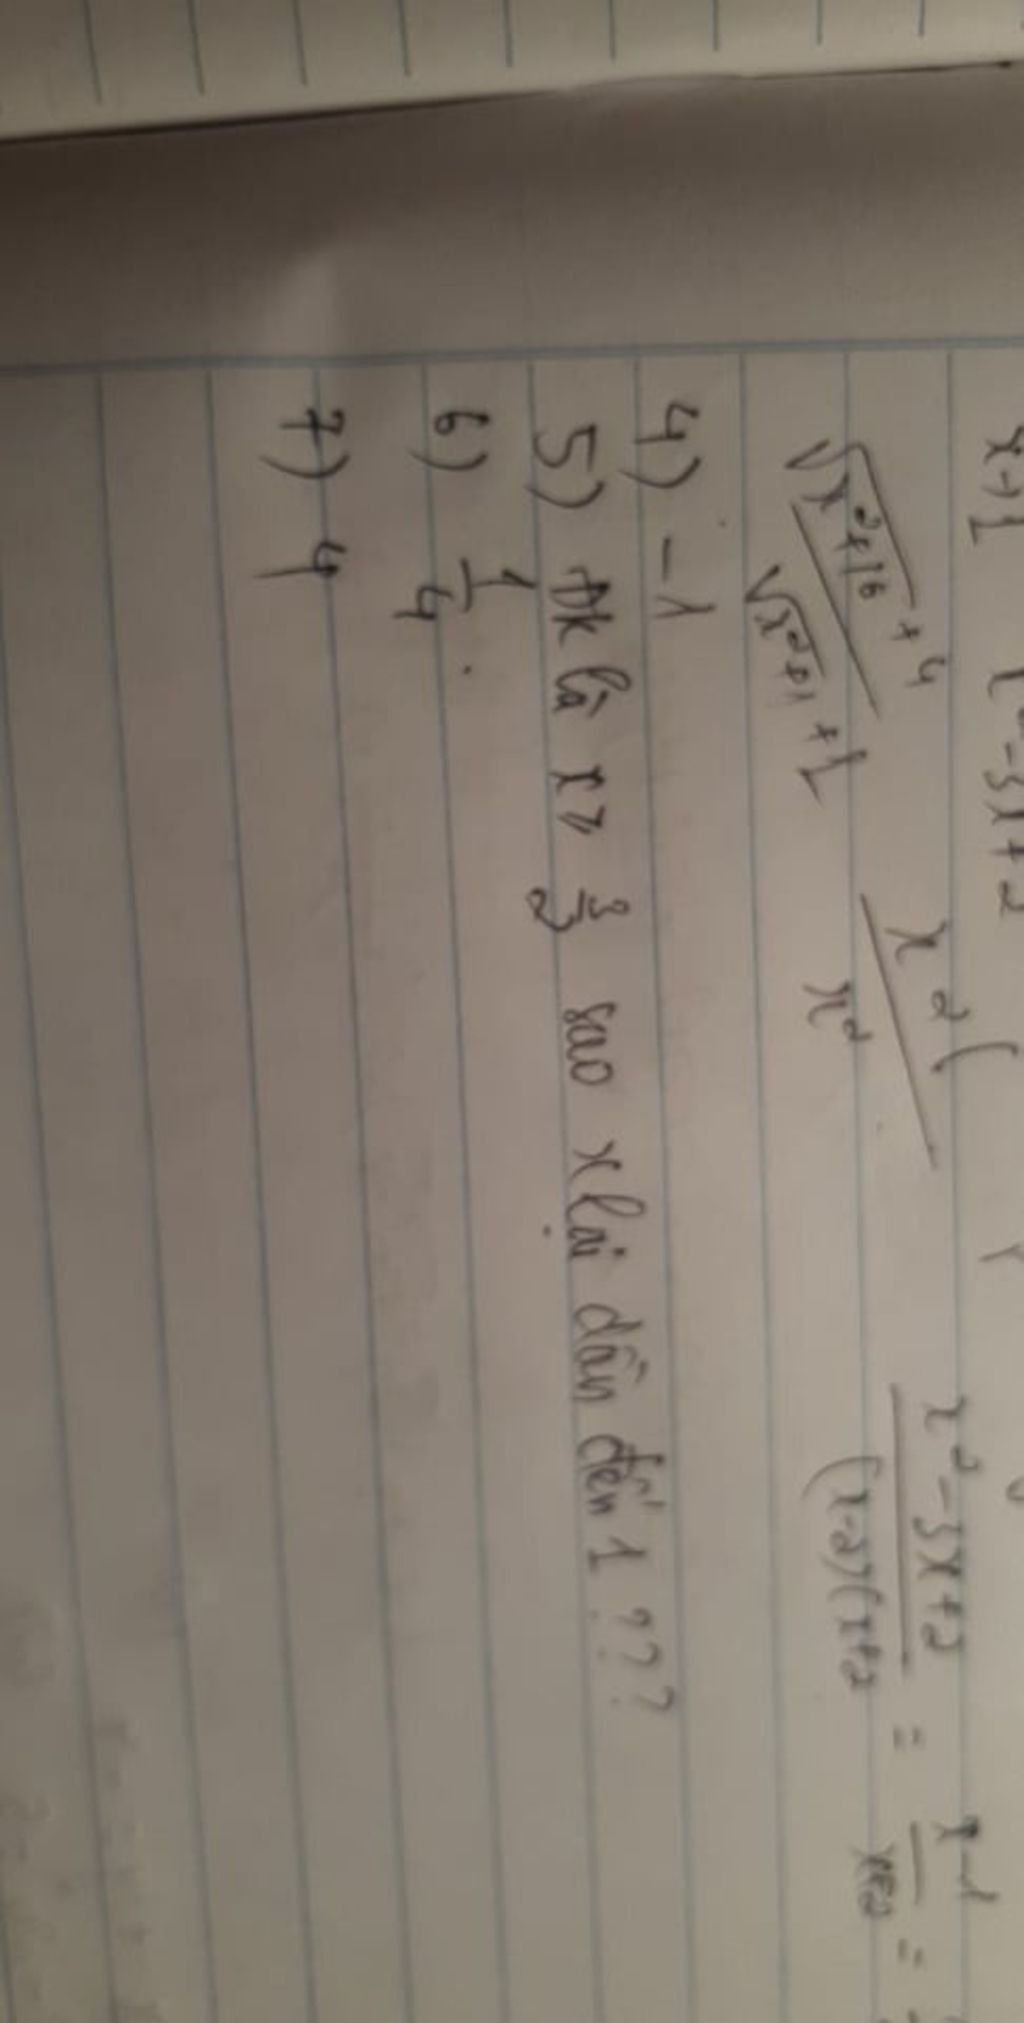 x→1 x² - 3x + 2
x² - 3x + 2 / (x-2)(x+2 = x-1 / x+2 =
√x²+16 + 4 / √x²+1 + 1 x² ( / x²
4) -1
5) Đk là x ≥ 3/2 sao x lại dần đến 1 ???
6) 1/4 .
7) 4